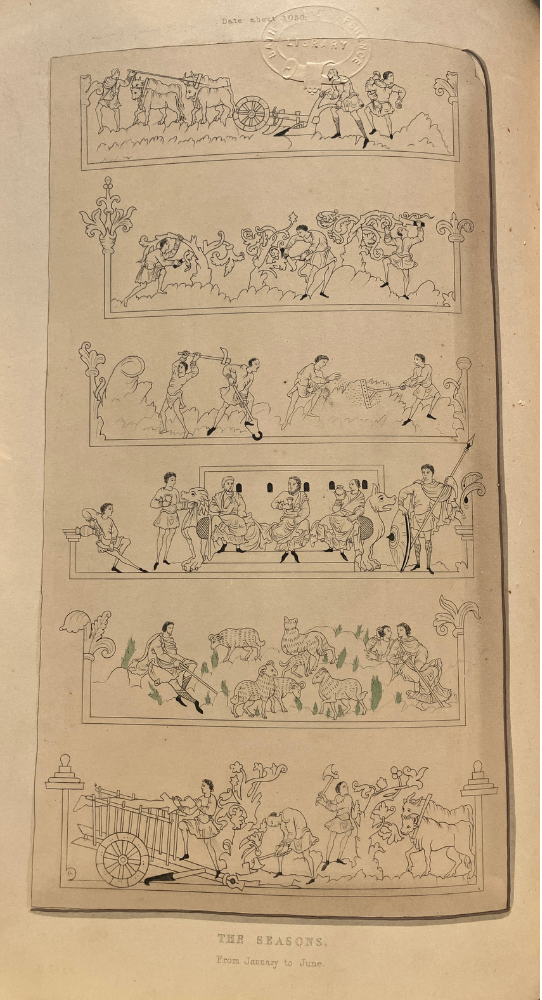 Date about 1050.
LIBRARY
THE SEASONS.
From January to June.